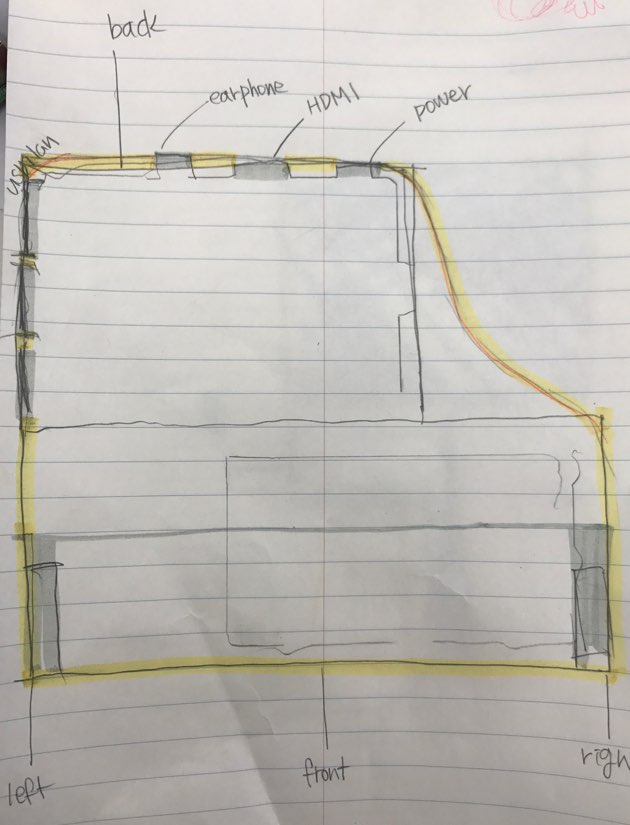 back
earphone
HDMI
power
usb/lan
left
front
righ